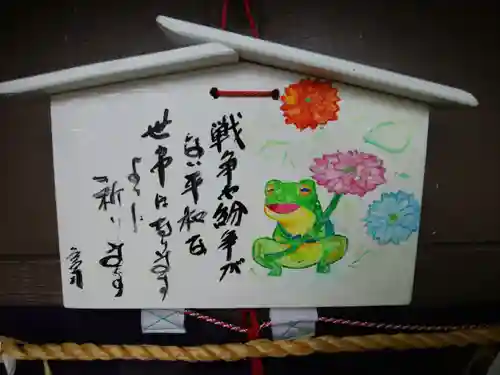 戦争や紛争が
ない平和な
世界になります
ように
お祈りします